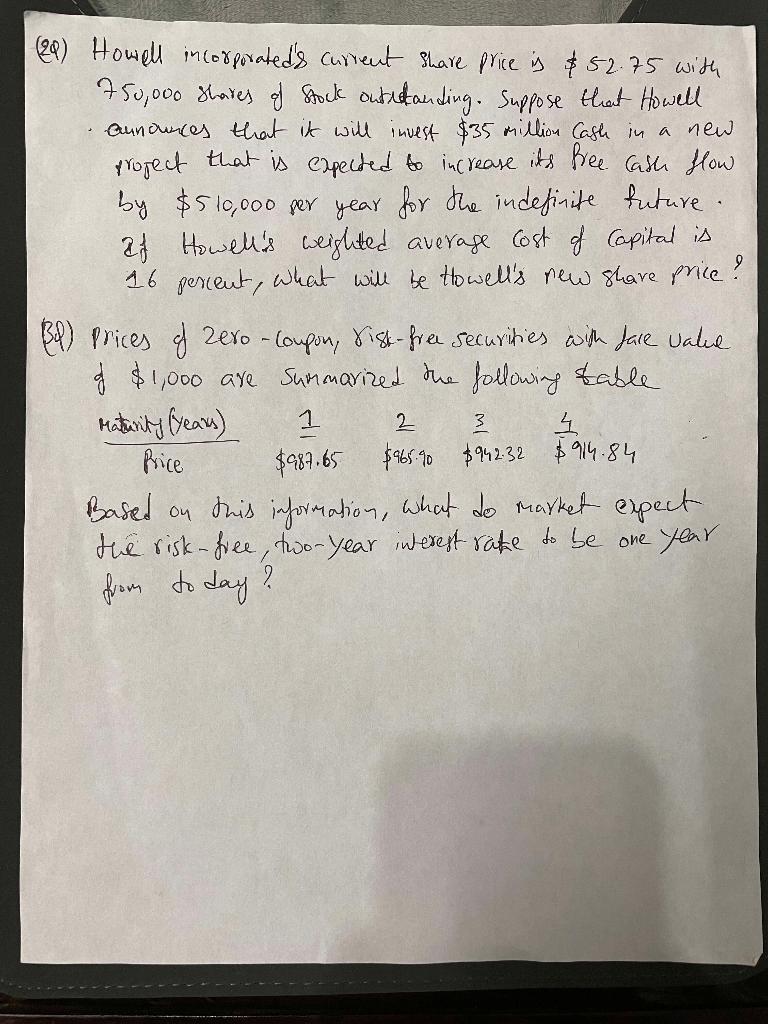 (2Q) Howell incorporated's current share price is $52.75 with
750,000 shares of stock outstanding. Suppose that Howell
announces that it will invest $35 million Cash in a new
project that is expected to increase its free cash flow
by $510,000 per year for the indefinite future.
If Howell's weighted average Cost of Capital is
16 percent, what will be Howell's new share price?
(3Q) Prices of Zero-Coupon, risk-free securities with face value
of $1,000 are Summarized the following table
Maturity (Years) 1 2 3 4
Price $987.65 $965.90 $942.32 $914.84
Based on this information, what do market expect
the risk-free, two-year interest rate to be one year
from today?